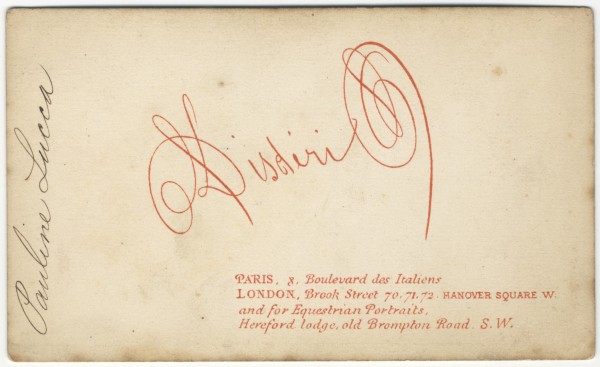 Pauline Lucca
Disdéri
PARIS, 8, Boulevard des Italiens
LONDON, Brook Street 70.71.72. HANOVER SQUARE W.
and for Equestrian Portraits,
Hereford lodge, old Brompton Road. S.W.